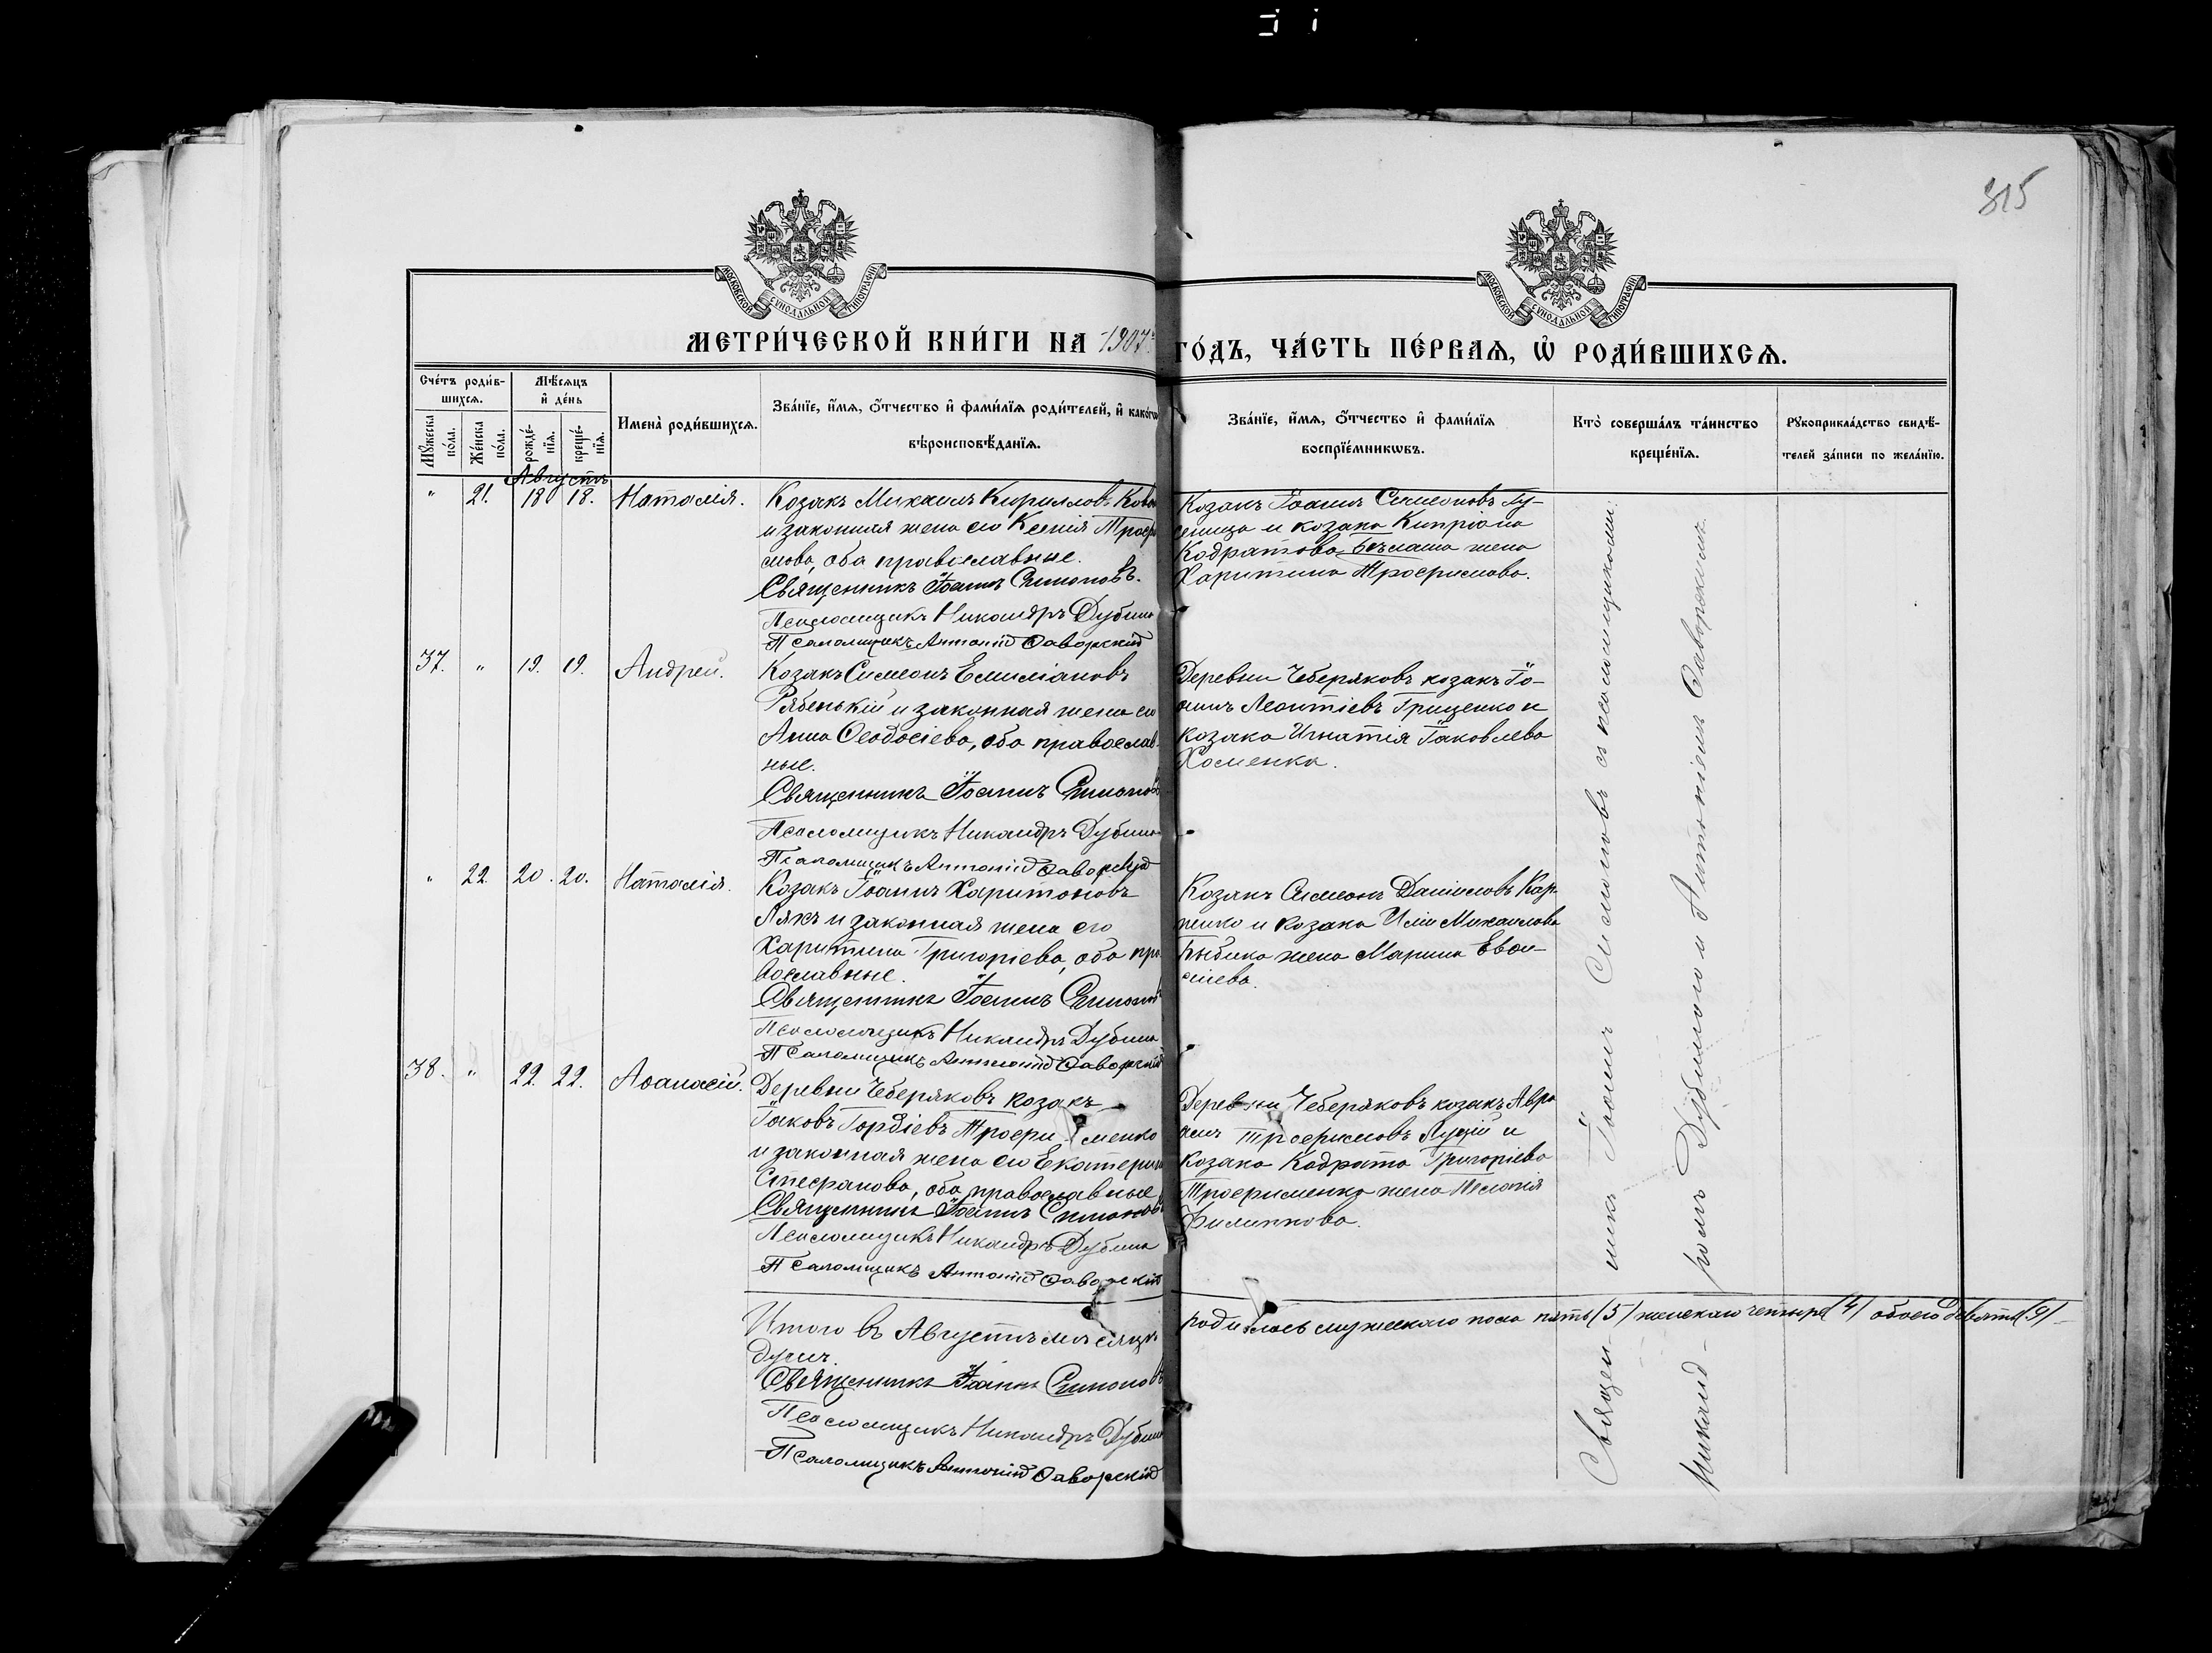 315
МОСКОВСКОЙ СѴНОДАЛЬНОЙ ТИПОГРАФІИ
МОСКОВСКОЙ СѴНОДАЛЬНОЙ ТИПОГРАФІИ
МЕТРИ́ЧЕСКОЙ КНИ́ГИ НА 1907 ГО́ДЪ, ЧА́СТЬ ПЕ́РВАѦ, Ѡ҆ РОДИ́ВШИХСѦ.
Сче́тъ роди́в-
шихсѧ.
Мꙋ́жеска по́ла.
Же́нска по́ла.
Мѣ́сѧцъ
и҆ де́нь
рожде́-
нїѧ.
креще́-
нїѧ.
Имена̀ роди́вшихсѧ.
Зва́нїе, и҆́мѧ, ѻ҆́тчество и҆ фами́лїѧ роди́телей, и҆ како́гѡ
вѣроисповѣ́данїѧ.
Зва́нїе, и҆́мѧ, ѻ҆́тчество и҆ фами́лїѧ
воспрїе́мникѡвъ.
Кто̀ соверша́лъ та́инство
креще́нїѧ.
Рꙋкоприкла́дство свидѣ́-
телей за́писи по жела́нїю.
Августъ
" 21. 18 18. Наталія.
Козакъ Михаилъ Кирилловъ
и законная жена его Ксенія Трофи
мова, оба православные.
Священникъ Іоаннъ Симоновъ.
Псаломщикъ Никандръ Дубина
Псаломщикъ Антоній Ѳаворскій
Козакъ Іоаннъ Симеоновъ Гу-
сеница и козака Кипріана
Кодратова жена
Харитина Трофимова.
37. " 19. 19. Андрей.
Козакъ Симеонъ Емиліановъ
Рябенькій и законная жена его
Анна Ѳеодосіева, оба православ
ные.
Священникъ Іоаннъ Симоновъ
Псаломщикъ Никандръ Дубина
Псаломщикъ Антоній Ѳаворскій
Деревни Чеберяковъ козакъ Іо-
аннъ Леонтіевъ Гриценко и
козака Игнатія Іаковлева
Хоменка.
" 22. 20. 20. Наталія.
Козакъ Іоаннъ Харитоновъ
Ляхъ и законная жена его
Харитина Григоріева, оба пра
вославные.
Священникъ Іоаннъ Симоновъ
Псаломщикъ Никандръ Дубина
Псаломщикъ Антоній Ѳаворскій
Козакъ Симеонъ Даніиловъ Кар-
пенко и козака Иліи Михаилова
жена Марина
38. " 22. 22. Аѳанасій.
Деревни Чеберяковъ козакъ
Іаковъ Гордіевъ Трофименко
и законная жена его Екатерина
Стефанова, оба православные
Священникъ Іоаннъ Симоновъ
Псаломщикъ Никандръ Дубина
Псаломщикъ Антоній Ѳаворскій
Деревни Чеберяковъ козакъ Авра
амъ Трофимовъ и
козака Кодрата Григоріева
Трофименка жена Пелагія
Филиппова.
Священ- никъ Іоаннъ Симоновъ съ псаломщиками:
Никанд- ромъ Дубиною и Антоніемъ Ѳаворскимъ.
Итого въ Августѣ мѣсяцѣ родилось мужескаго пола пять (5) женскаго четыре (4) обоего девять (9)
душъ.
Священникъ Іоаннъ Симоновъ
Псаломщикъ Никандръ Дубина
Псаломщикъ Антоній Ѳаворскій